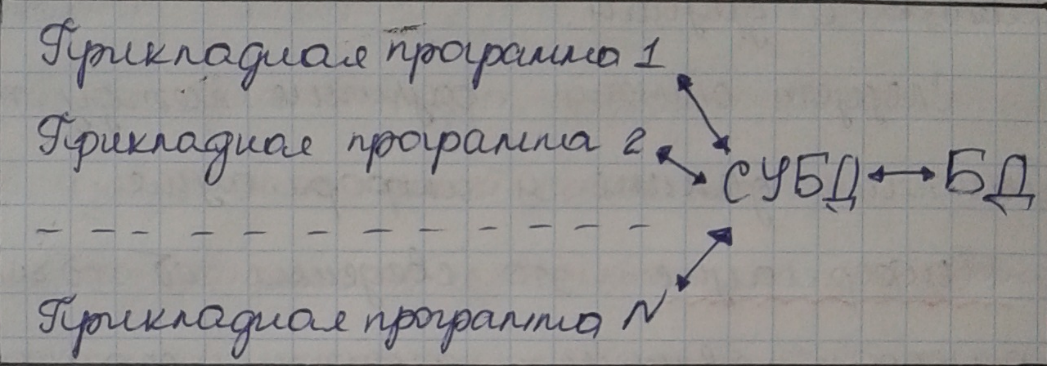 Прикладная программа 1
Прикладная программа 2
СУБД БД
Прикладная программа N